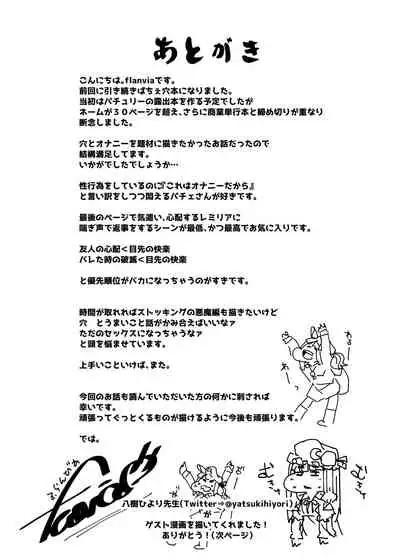 あとがき
こんにちは。flanviaです。
前回に引き続きぱちぇ穴本になりました。
当初はパチュリーの露出本を作る予定でしたが
ネームが30ページを超え、さらに商業単行本と締め切りが重なり
断念しました。
穴とオナニーを題材に描きたかったお話だったので
結構満足してます。
いかがでしたでしょうか…
性行為をしているのに『これはオナニーだから』
と言い訳をしつつ悶えるパチェさんが好きです。
最後のページで気遣い、心配するレミリアに
喘ぎ声で返事をするシーンが最低、かつ最高でお気に入りです。
友人の心配<目先の快楽
バレた時の破滅<目先の快楽
と優先順位がバカになっちゃうのがすきです。
時間が取れればストッキングの悪魔編も描きたいけど
穴 とうまいこと話がかみ合えばいいなァ
ただのセックスになっちゃうなァ
と頭を悩ませています。
上手いこといけば、また。
今回のお話も読んでいただいた方の何かに刺されば
幸いです。
頑張ってぐっとくるものが描けるように今後も頑張ります。
では。
わぁー
ふらんびあ
flanvia
むきゅ
むぎゅ
八樹ひより先生(Twitter⇒@yatsukihiyori)
が
ゲスト漫画を描いてくれました!
ありがとう!(次ページ)